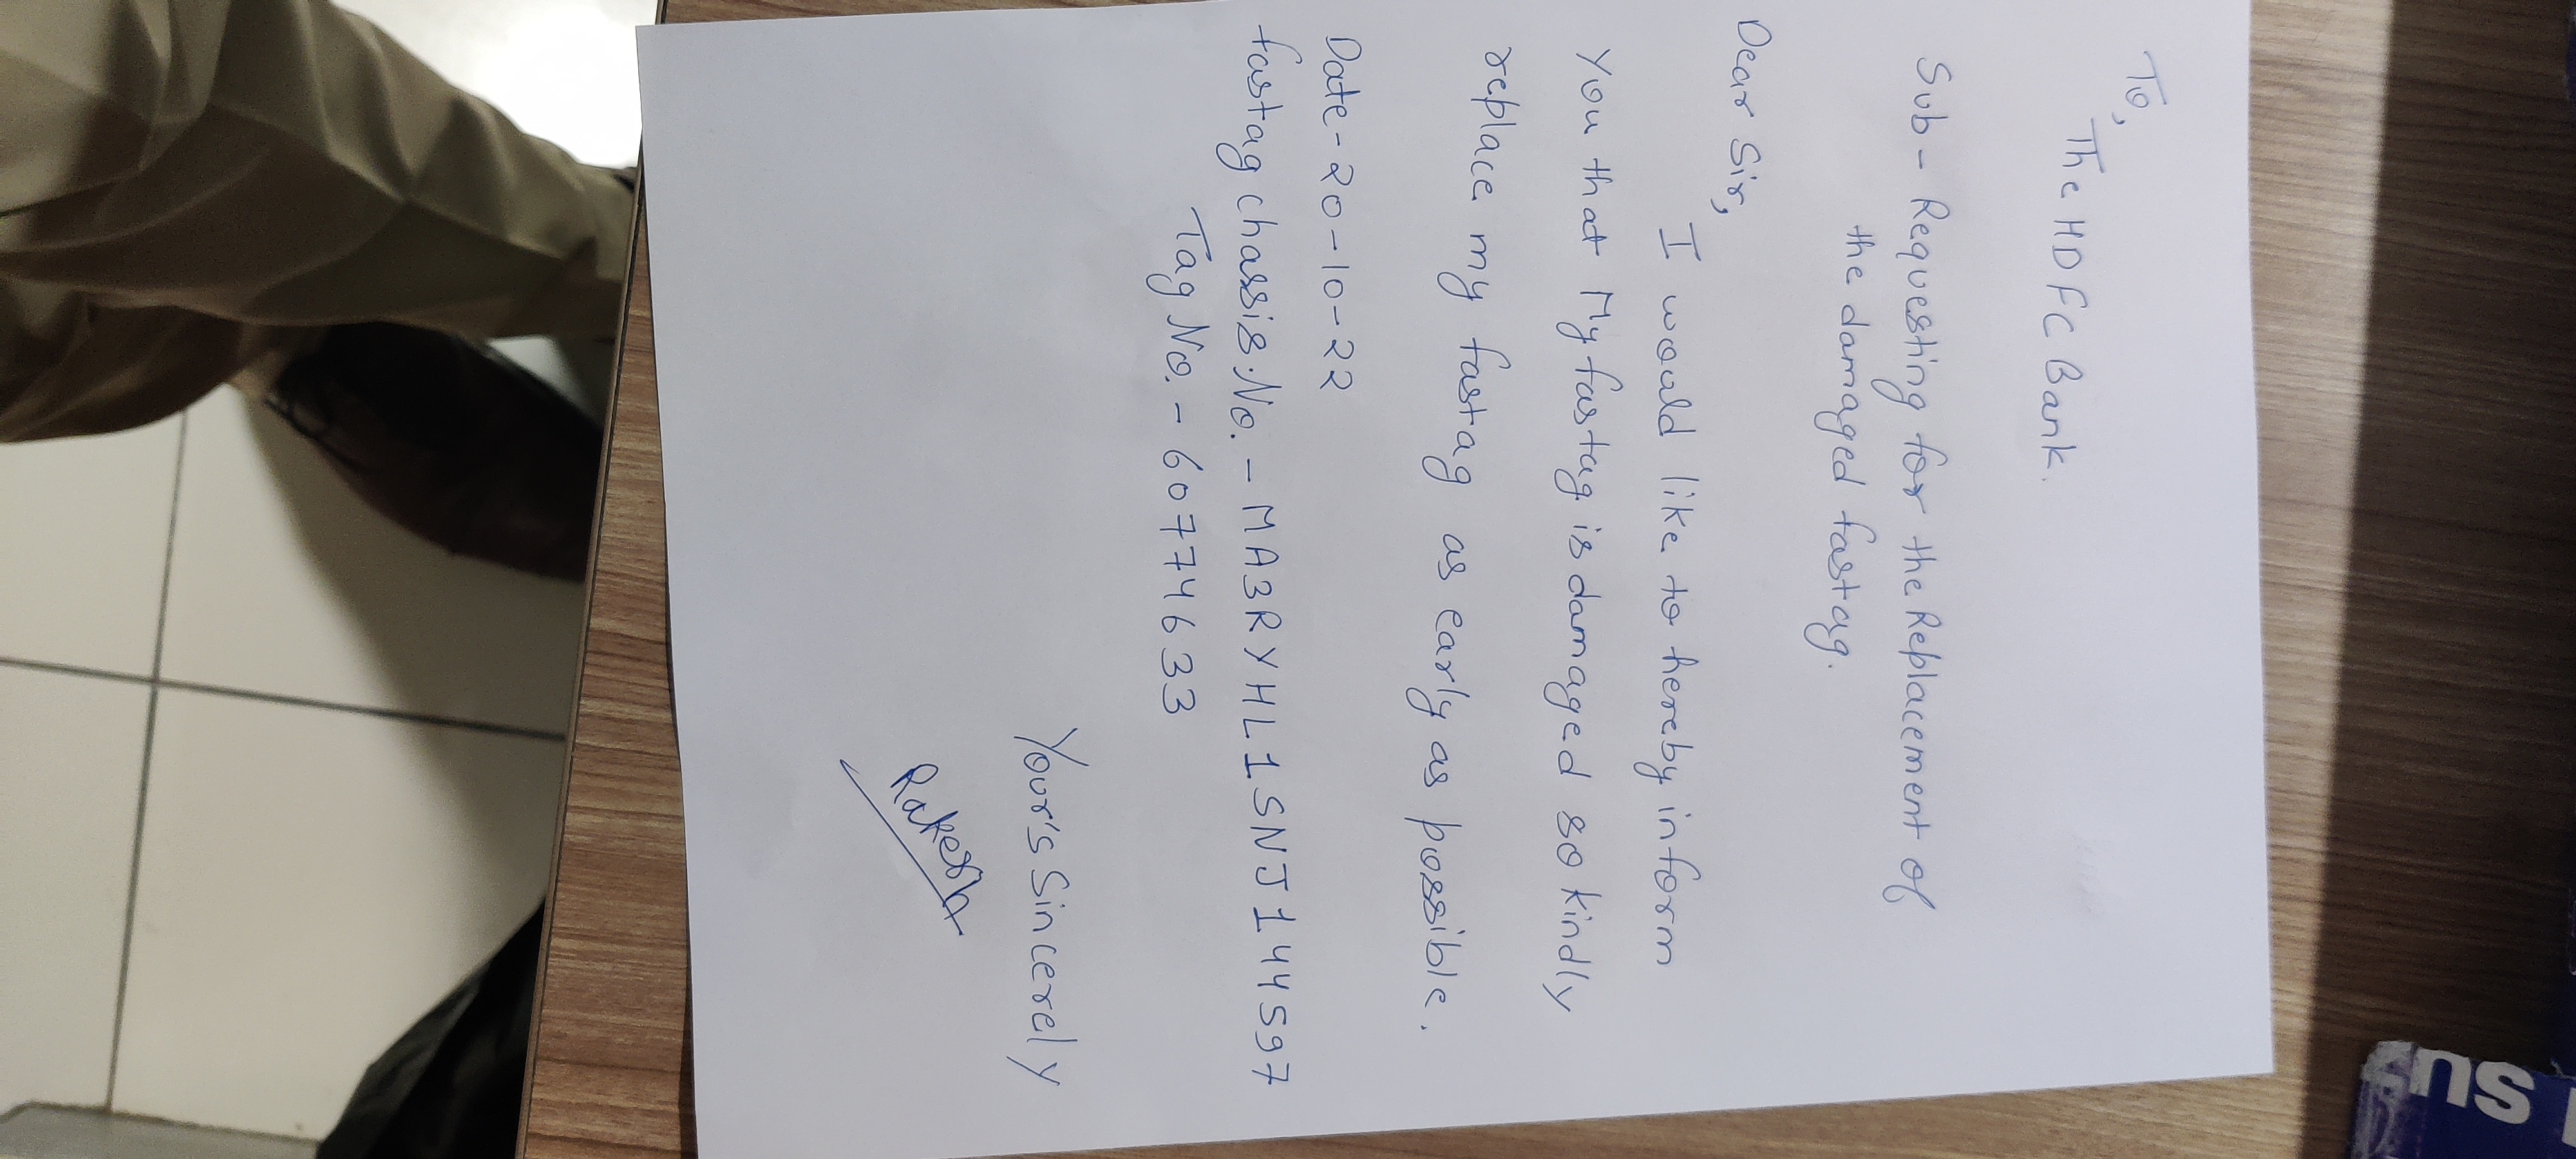 To,
The HDFC Bank.
Sub - Requesting for the Replacement of
the damaged fastag.
Dear Sir,
I would like to hereby inform
You that My fastag is damaged so kindly
replace my fastag as early as possible.
Date - 20-10-22
fastag chassis No. - MA3RYHL1SNJ144597
Tag No. - 607746633
Your's Sincerely
Rakesh